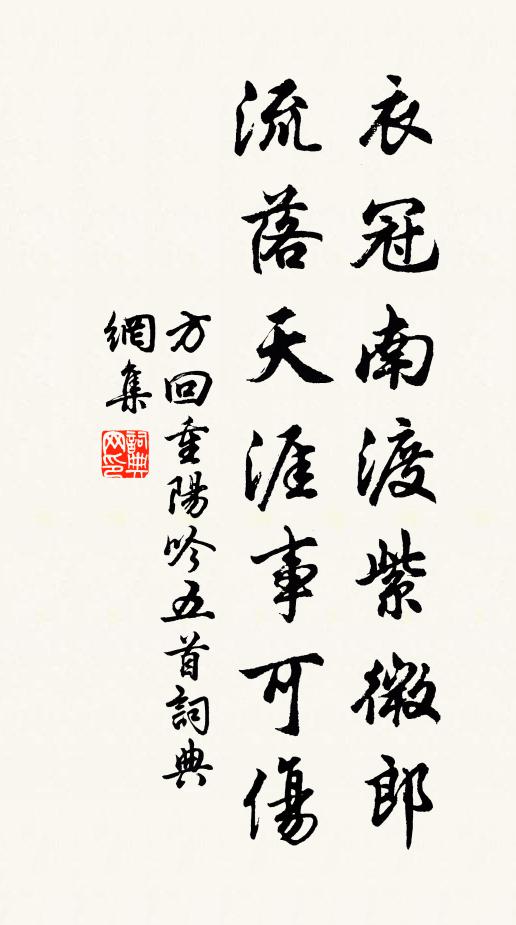 衣冠南渡紫微郎
流落天涯事可傷
方回重陽吟五首詞典
網集
詞典网印